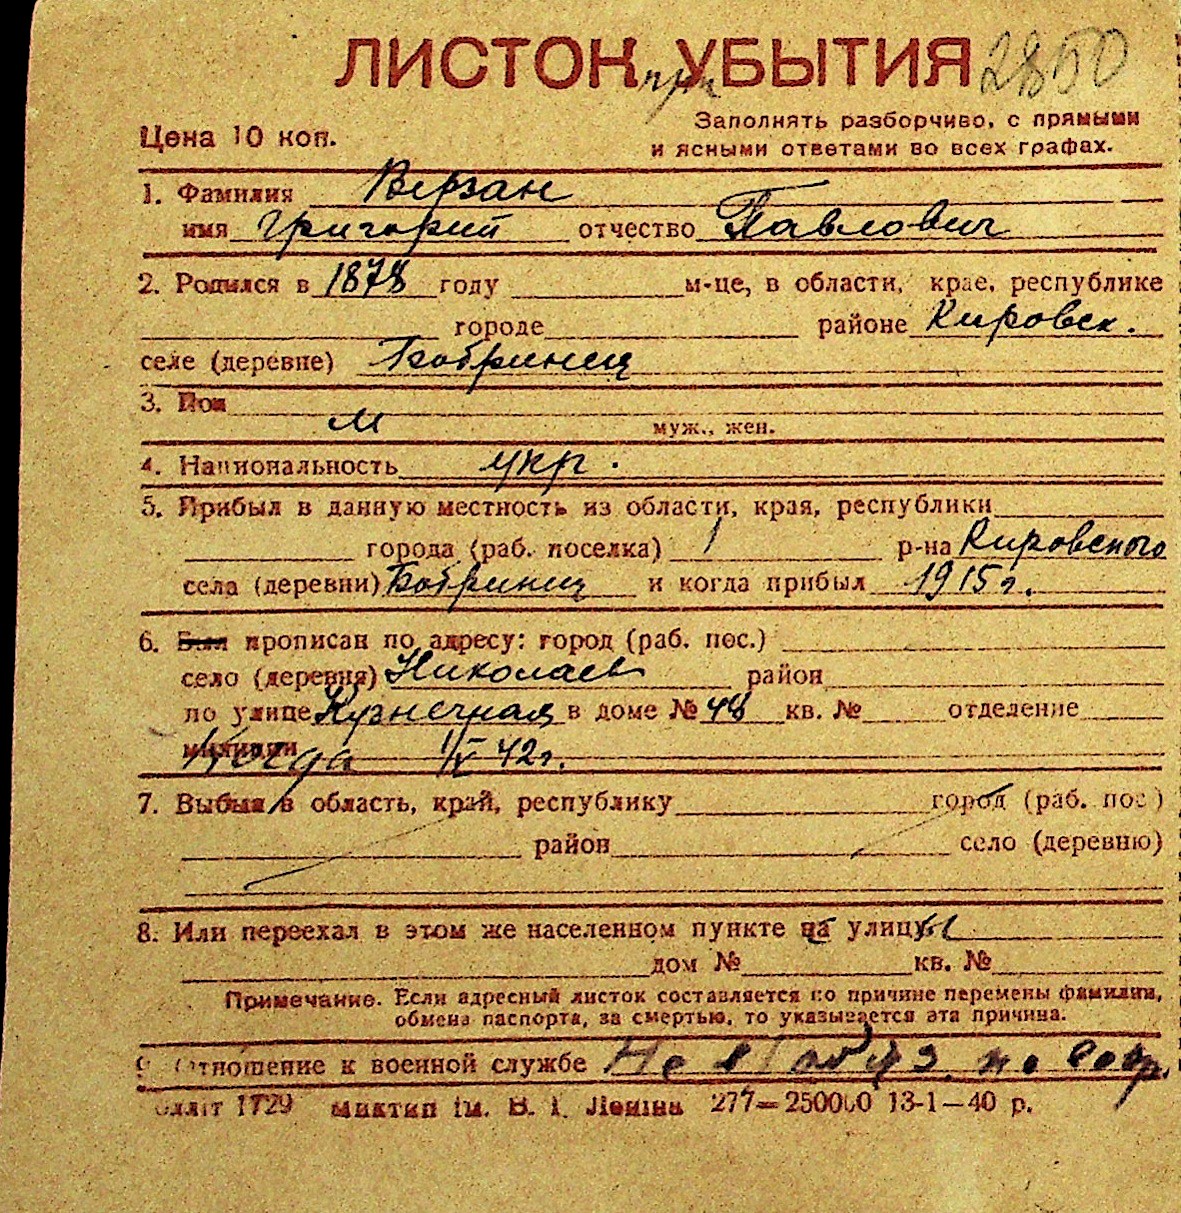 ЛИСТОК при УБЫТИЯ 2850
Заполнять разборчиво, с прямыми
Цена 10 коп.
и ясными ответами во всех графах.
1. Фамилия Верзан
имя Григорий отчество Павлович
2. Родился в 1878 году м-це, в области, крае, республике
городе районе Кировск.
селе (деревне) Бобринец
3. Пол м муж., жен.
4. Национальность укр.
5. Прибыл в данную местность из области, края, республики
города (раб. поселка) р-на Кировского
села (деревни) Бобринец и когда прибыл 1915 г.
6. Был прописан по адресу: город (раб. пос.)
село (деревня) Николаев район
по улице Кузнечная в доме № 48 кв. № отделение
милиции Когда 1/V 42 г.
7. Выбыл в область, край, республику город (раб. пос)
район село (деревню)
8. Или переехал в этом же населенном пункте на улицу
дом № кв. №
Примечание. Если адресный листок составляется по причине перемены фамилии,
обмена паспорта, за смертью, то указывается эта причина.
9. Отношение к военной службе Не
1729 ім. В. І. Леніна 277—250000 13-1—40 р.